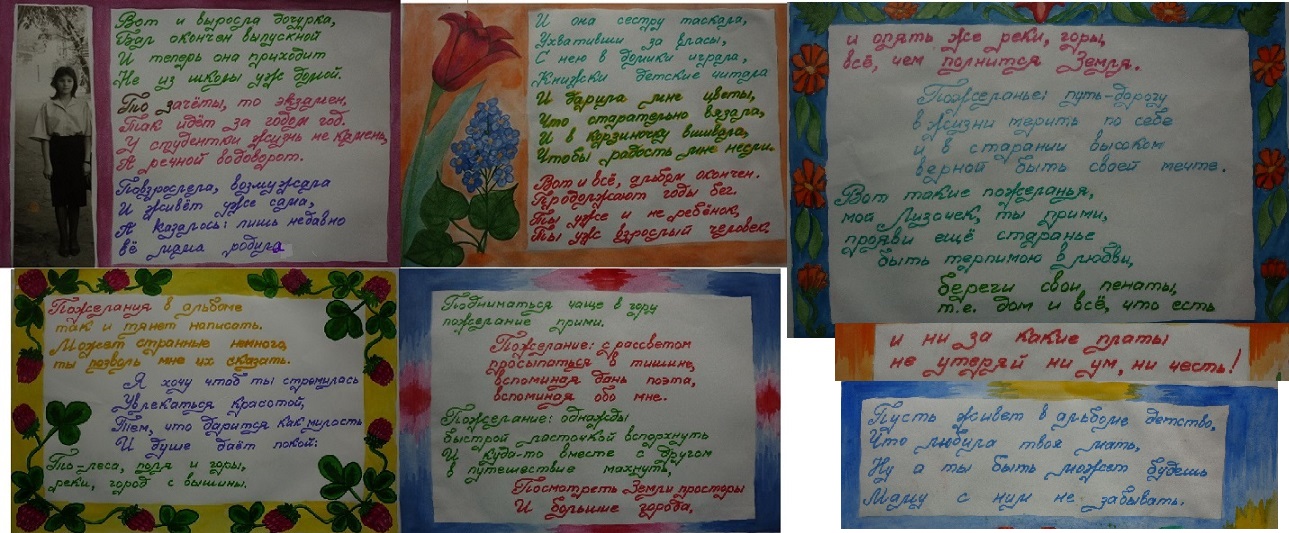 Вот и выросла дочурка,
Бал окончен выпускной
И теперь она приходит
Не из школы уж домой.
То зачёты, то экзамен,
Так идёт за годом год.
У студентки жизнь не камень,
А речной водоворот.
Повзрослела, возмужала
И живёт уже сама,
А казалось: лишь недавно
её мама родила
И она сестру таскала,
Ухвативши за власы,
С нею в домики играла,
Книжки детские читала
И дарила мне цветы,
Что старательно вязала,
И в корзиночку вшивала,
Чтобы радость мне несли.
Вот и всё, альбом окончен.
Продолжают годы бег.
Ты уже и не ребёнок,
Ты уж взрослый человек.
Пожелания в альбоме
так и тянет написать.
Может странные немного,
ты позволь мне их сказать.
Я хочу чтоб ты стремилась
Увлекаться красотой,
Тем, что дарится как милость
И душе даёт покой:
То-леса, поля и горы,
реки, город с вышины.
Подниматься чаще в гору
пожелание прими.
Пожелание: с рассветом
просыпаться в тишине,
вспоминая дань поэта,
вспоминая обо мне.
Пожелание: однажды
быстрой ласточкой вспорхнуть
И куда-то вместе с другом
в путешествие махнуть,
Посмотреть Земли просторы
И большие города,
и опять же реки, горы,
всё, чем полнится Земля.
Пожеланье: путь-дорогу
в жизни торить по себе
и в старании высоком
верной быть своей мечте.
Вот такие пожеланья,
моя Лизочек, ты прими,
прояви ещё старанье
быть терпимою в любви,
береги свои пенаты,
т.е. дом и всё, что есть
и ни за какие платы
не утеряй ни ум, ни честь!
Пусть живёт в альбоме детство,
Что любила твоя мать,
Ну а ты быть может будешь
Маму с ним не забывать.